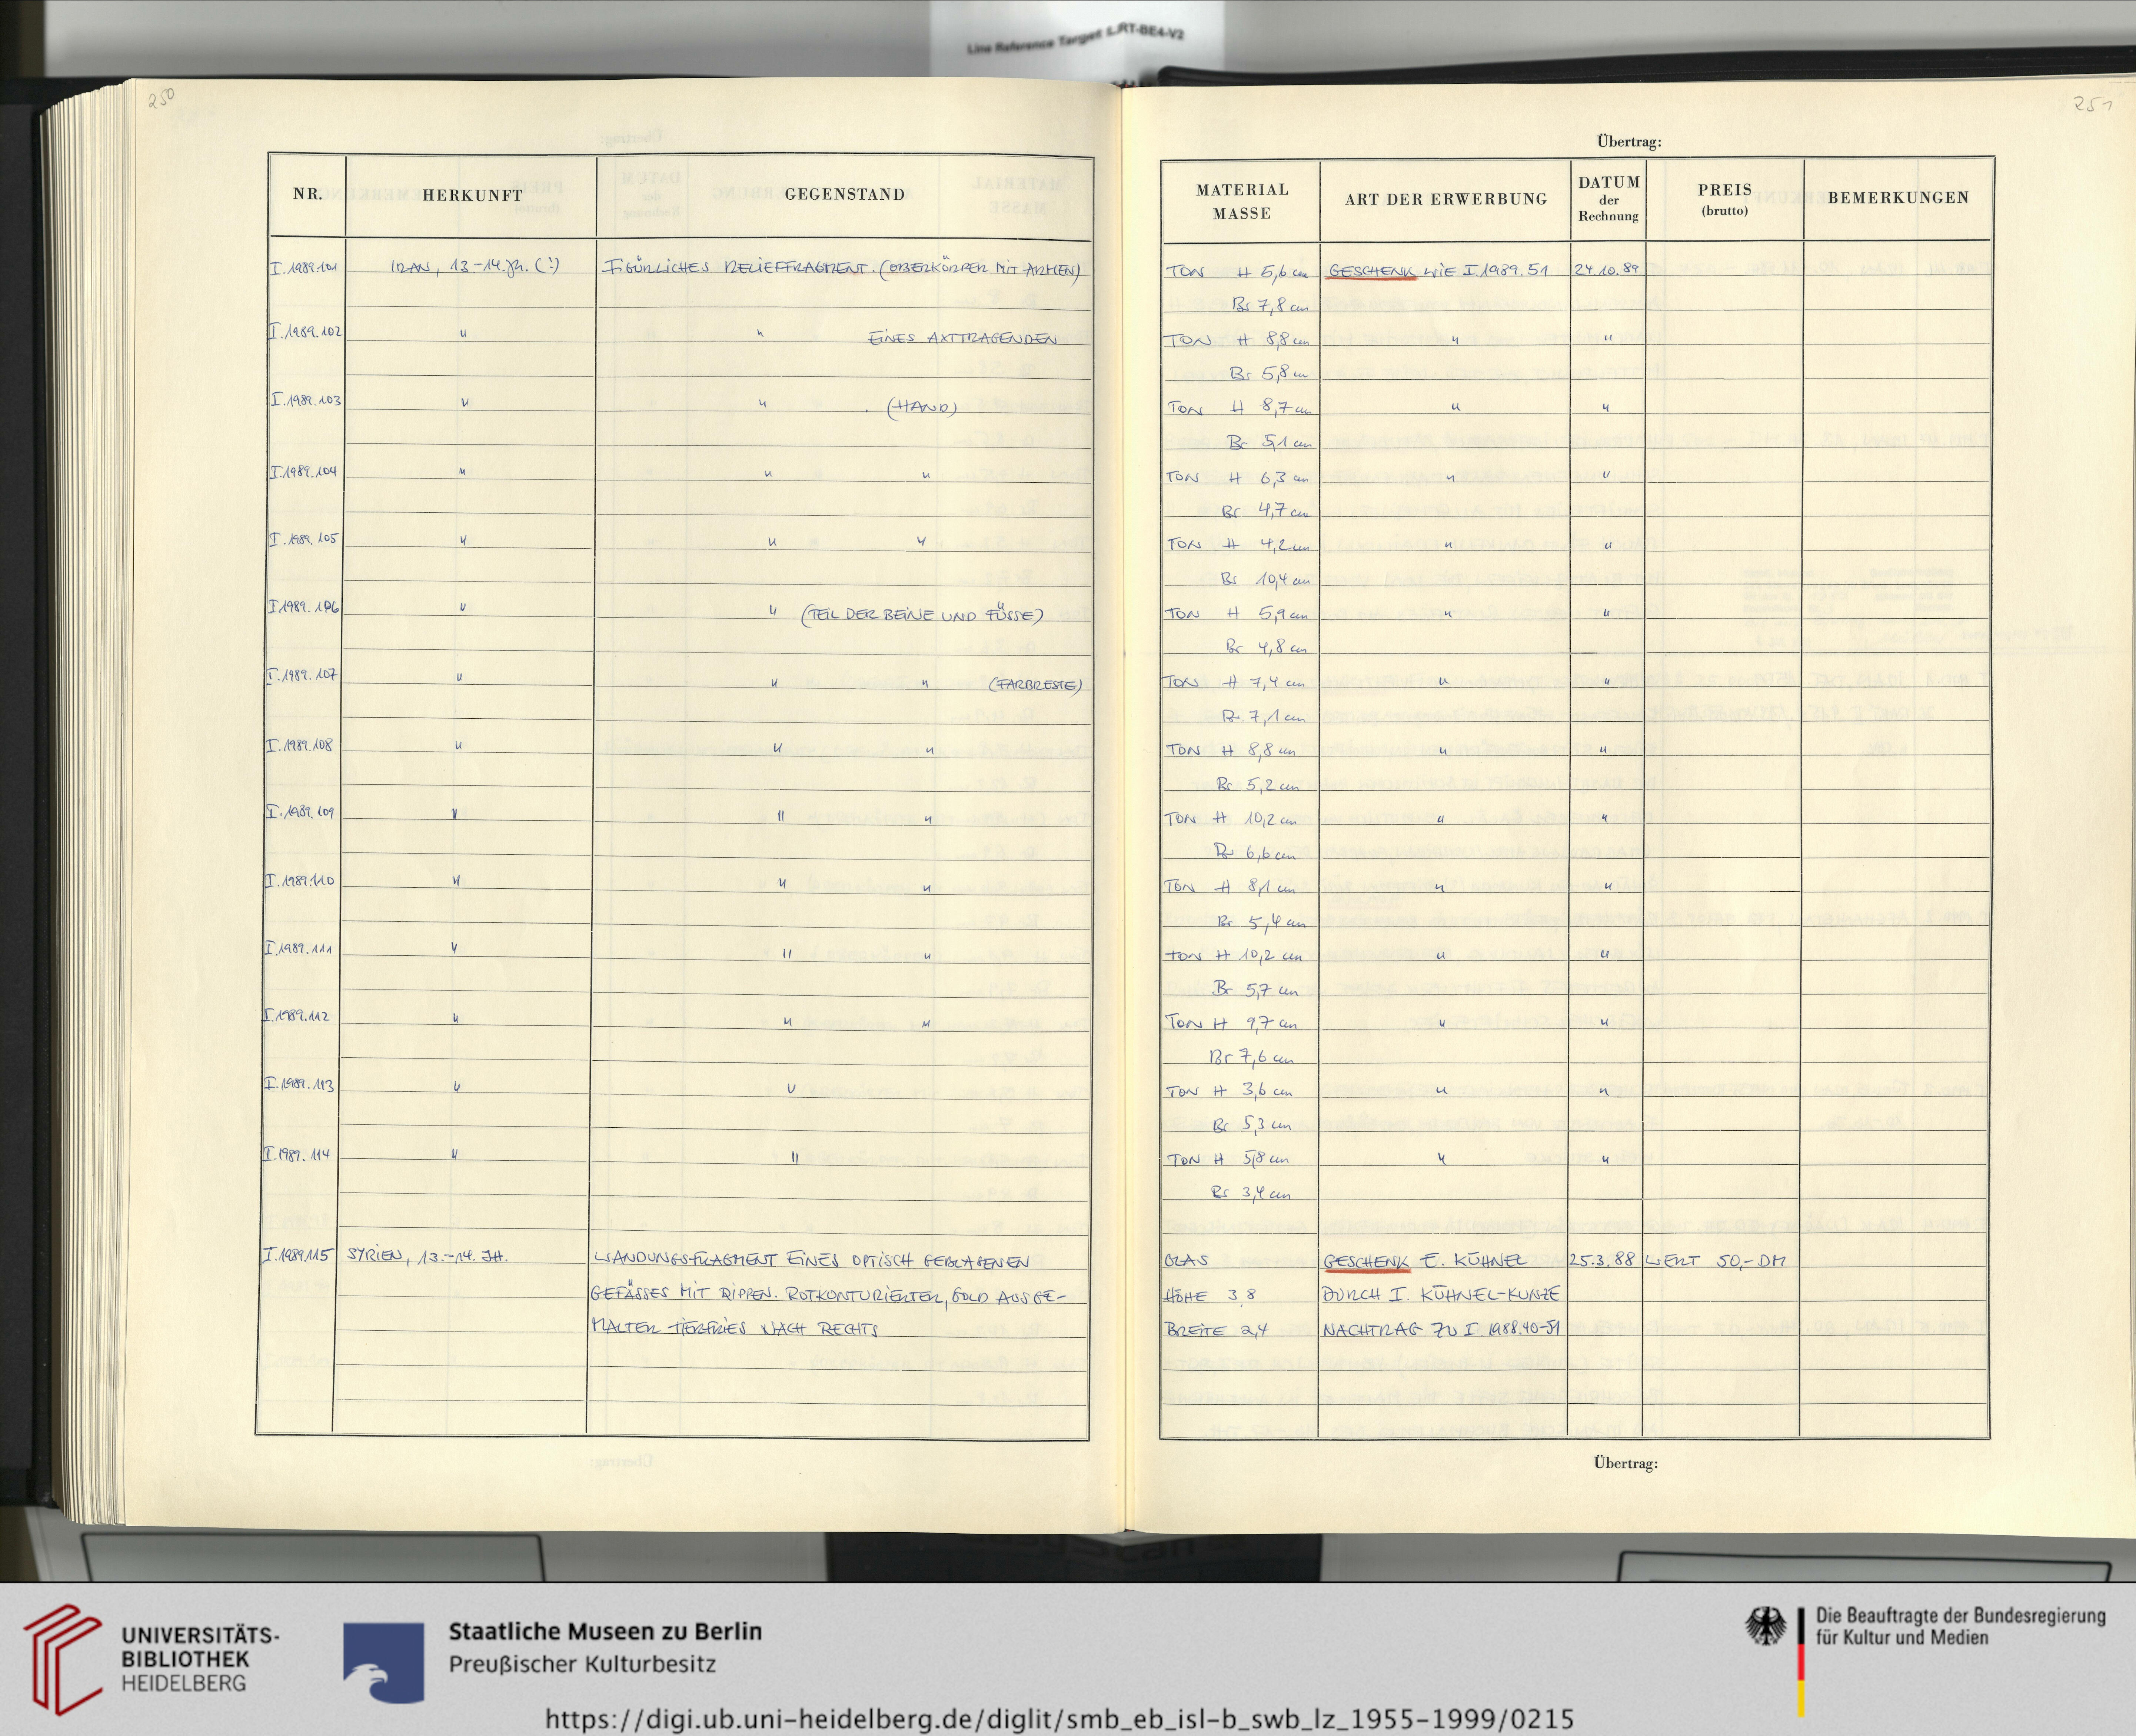 Line Reference Target LRT-BE4-V2
250
251
Übertrag:
NR. HERKUNFT GEGENSTAND MATERIAL MASSE ART DER ERWERBUNG DATUM der Rechnung PREIS (brutto) BEMERKUNGEN
I.1989.101 IRAN, 13-14.Jh. (?) FIGÜRLICHES RELIEFFRAGMENT. (OBERKÖRPER MIT ARMEN) TON H 5,6 cm GESCHENK WIE I.1989.51 24.10.89
Br 7,8 cm
I.1989.102 " " EINES AXTTRAGENDEN TON H 8,8 cm " "
Br 5,8 cm
I.1989.103 " " (HAND) TON H 8,7 cm " "
Br 5,1 cm
I.1989.104 " " " TON H 6,3 cm " "
Br 4,7 cm
I.1989.105 " " " TON H 4,2 cm " "
Br 10,4 cm
I.1989.106 " " (TEIL DER BEINE UND FÜSSE) TON H 5,9 cm " "
Br 4,8 cm
I.1989.107 " " " (FARBRESTE) TON H 7,4 cm " "
Br 7,1 cm
I.1989.108 " " " TON H 8,8 cm " "
Br 5,2 cm
I.1989.109 " " " TON H 10,2 cm " "
Br 6,6 cm
I.1989.110 " " " TON H 8,1 cm " "
Br 5,4 cm
I.1989.111 " " " TON H 10,2 cm " "
Br 5,7 cm
I.1989.112 " " " TON H 9,7 cm " "
Br 7,6 cm
I.1989.113 " " TON H 3,6 cm " "
Br 5,3 cm
I.1989.114 " " TON H 5,8 cm " "
Br 3,4 cm
I.1989.115 SYRIEN, 13.-14. JH. WANDUNGSFRAGMENT EINES OPTISCH GEBLASENEN GLAS GESCHENK E. KÜHNEL 25.3.88 WERT 50,- DM
GEFÄSSES MIT RIPPEN. ROTKONTURIERTER, GOLD AUSGE- HÖHE 3,8 DURCH I. KÜHNEL-KUNZE
MALTER TIERFRIES NACH RECHTS BREITE 2,4 NACHTRAG ZU I.1988.40-51
Übertrag:
UNIVERSITÄTS-
BIBLIOTHEK
HEIDELBERG
Staatliche Museen zu Berlin
Preußischer Kulturbesitz
Die Beauftragte der Bundesregierung
für Kultur und Medien
https://digi.ub.uni-heidelberg.de/diglit/smb_eb_isl-b_swb_lz_1955-1999/0215